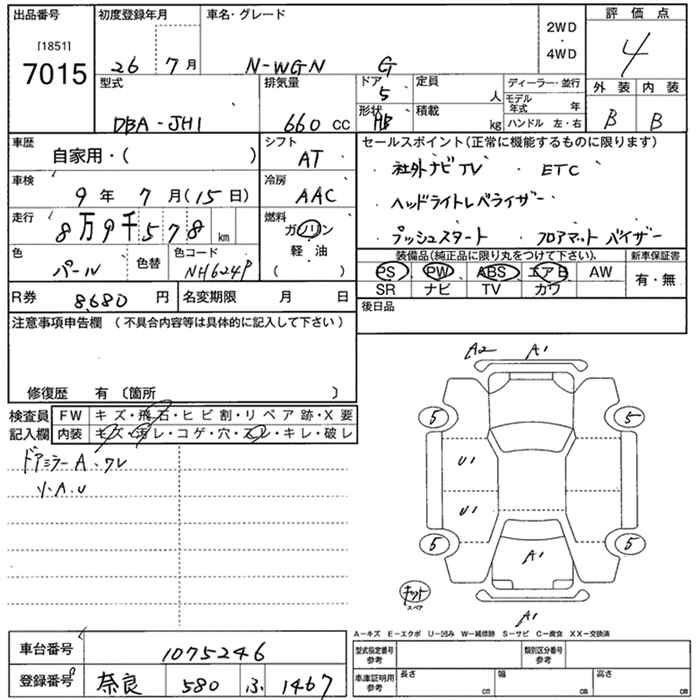 出品番号 初度登録年月 車名・グレード 評価点
[1851] 7015 26 7月 N-WGN G 2WD・4WD 4
型式 排気量 ドア 5 定員 人 ディーラー・並行 外装 内装
DBA-JH1 660 CC 形状 HB 積載 kg モデル年式 年 ハンドル 左・右 B B
車歴 自家用・( ) シフト AT セールスポイント(正常に機能するものに限ります)
車検 9年 7月(15日) 冷房 AAC ・社外ナビTV ・ETC
・ヘッドライトレベライザー
走行 8万9千578 km 燃料 ガソリン 軽・油 ( ) ・プッシュスタート ・フロアマット バイザー
色 パール 色替 色コード NH624P 装備品(純正品に限り丸をつけて下さい). 新車保証書
PS PW ABS エアB AW 有・無
R券 8,680 円 名変期限 月 日 SR ナビ TV カワ
注意事項申告欄 (不具合内容等は具体的に記入して下さい) 後日品
修復歴 有 〔箇所 〕
検査員記入欄 FW キズ・飛石・ヒビ割・リペア跡・X要
内装 キズ・汚レ・コゲ・穴・スレ・キレ・破レ
ドアミラーA・ワレ
リ・A・U
A2 A1
5 5
U1
U1
5 5
A1
キット
スペア
A1
A-キズ E-エクボ U-凹み W-補修跡 S-サビ C-腐食 XX-交換済
車台番号 1075246 型式指定番号 参考 類別区分番号 参考
登録番号 奈良 580 ふ 1467 車庫証明用 参考 長さ cm 幅 cm 高さ cm